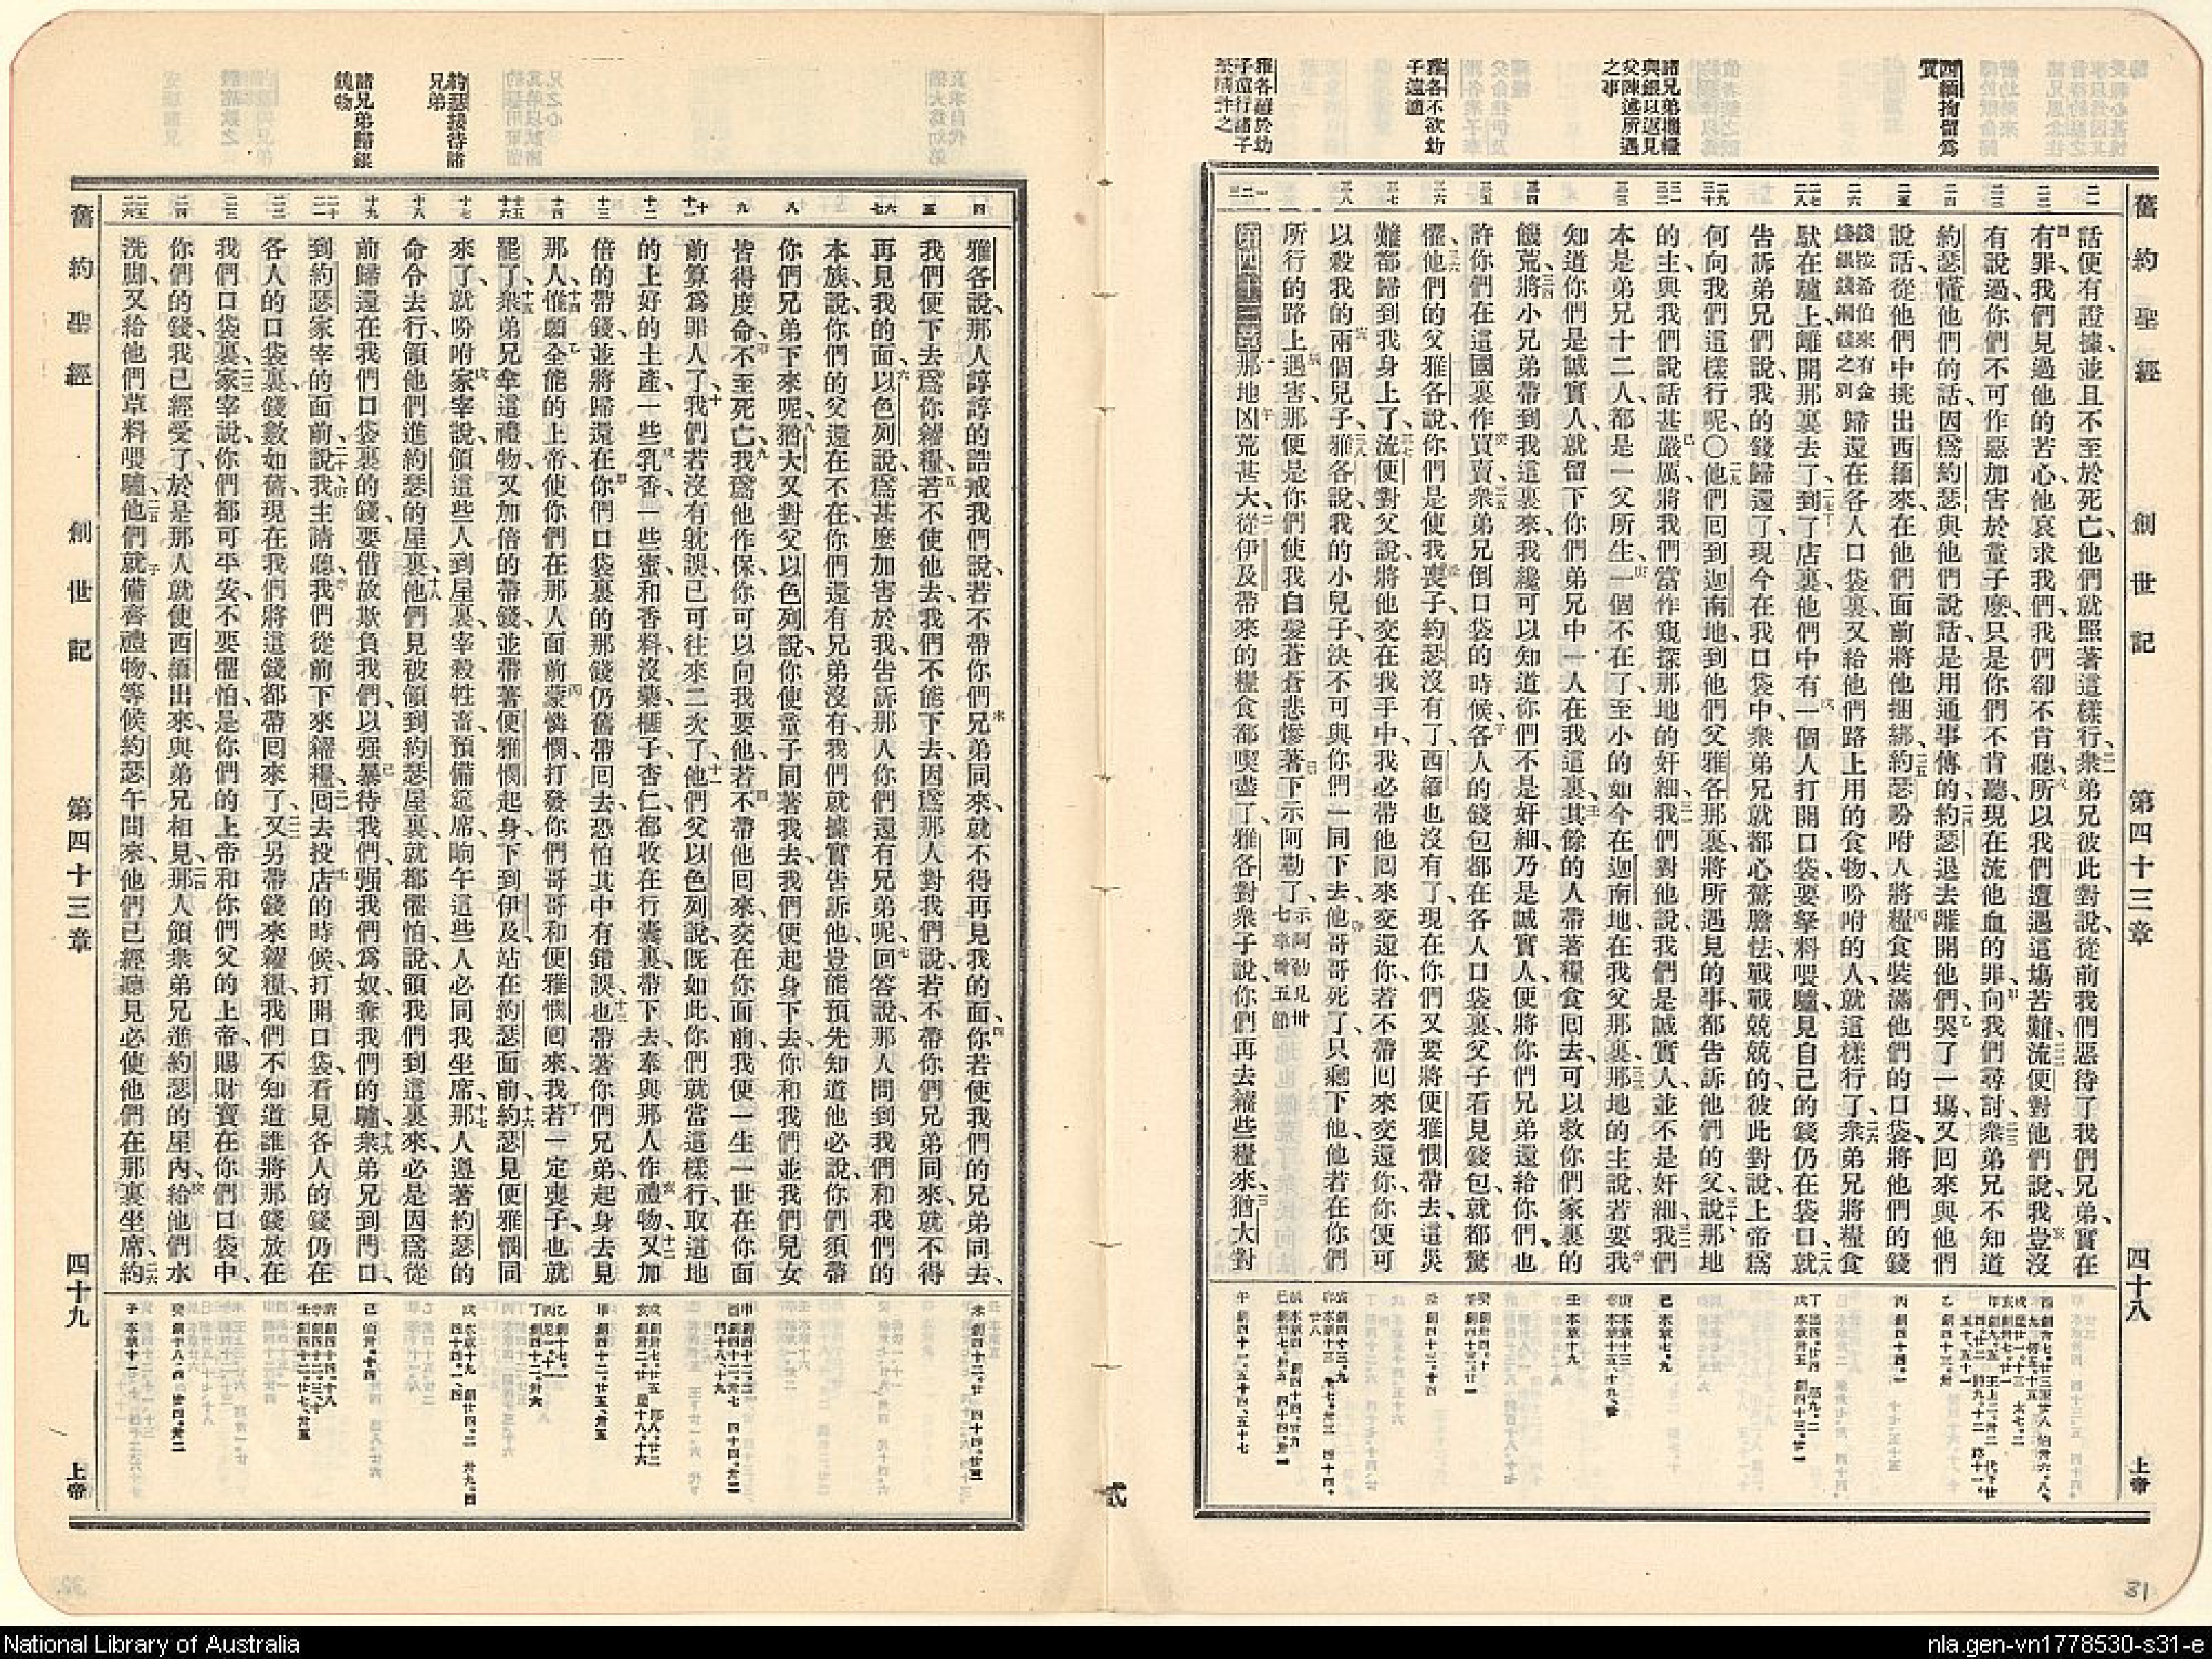 舊約聖經 創世記 第四十三章 四十八 上帝
西緬拘留爲質
諸兄弟攜糧與銀以返見父陳述所遇之事
雅各不欲幼子遠適
雅各難於幼子遠行諸子
話便有證據、並且不至於死亡、他們就照著這樣行、衆弟兄彼此對說、從前我們惡待了我們兄弟、實在
有罪、我們見過他的苦心、他哀求我們、我們卻不肯聽、所以我們遭遇這塲苦難、流便對他們說、我豈沒
有說過、你們不可作惡加害於童子麽、只是你們不肯聽、現在流他血的罪、向我們尋討、衆弟兄不知道
約瑟懂他們的話、因爲約瑟與他們說話、是用通事傳的、約瑟退去離開他們、哭了一塲、又回來與他們
說話、從他們中挑出西緬來、在他們面前將他捆綁、約瑟吩咐人將糧食裝滿他們的口袋、將他們的錢
錢按希伯來有金錢銀錢銅錢之別 歸還在各人口袋裏、又給他們路上用的食物、吩咐的人、就這樣行了、衆弟兄將糧食
馱在驢上、離開那裏去了、到了店裏、他們中有一個人打開口袋、要拏料喂驢、見自己的錢仍在袋口、就
告訴弟兄們說、我的錢歸還了、現今在我口袋中、衆弟兄就都心驚膽怯、戰戰兢兢的彼此對說、上帝爲
何向我們這樣行呢○他們回到迦南地、到他們父雅各那裏、將所遇見的事、都告訴他們的父說、那地
的主與我們說話甚嚴厲、將我們當作窺探那地的奸細、我們對他說、我們是誠實人、並不是奸細、我們
本是弟兄十二人、都是一父所生、一個不在了、至小的如今在迦南地、在我父那裏、那地的主說、若要我
知道你們是誠實人、就留下你們弟兄中一人在我這裏、其餘的人帶著糧食回去、可以救你們家裏的
饑荒、將小兄弟帶到我這裏來、我纔可以知道你們不是奸細、乃是誠實人、便將你們兄弟還給你們、也
許你們在這國裏作買賣、衆弟兄倒口袋的時候、各人的錢包都在各人口袋裏、父子看見錢包就都驚
懼、他們的父雅各說、你們是使我喪子、約瑟沒有了、西緬也沒有了、現在你們又要將便雅憫帶去、這災
難都歸到我身上了、流便對父說、將他交在我手中、我必帶他回來交還你、若不帶回來交還你、你便可
以殺我的兩個兒子、雅各說、我的小兒子、決不可與你們一同下去、他哥哥死了、只剩下他、他若在你們
所行的路上遇害、那便是你們使我白髮蒼蒼悲慘著下示阿勒了、示阿勒見卅七章卅五節
第四十三章 那地凶荒甚大、從伊及帶來的糧食都喫盡了、雅各對衆子說、你們再去糴些糧來、猶大對
約瑟接待諸兄弟
諸兄弟歸銀餽物
雅各說、那人諄諄的誥戒我們說、若不帶你們兄弟同來、就不得再見我的面、你若使我們的兄弟同去、
我們便下去爲你糴糧、若不使他去、我們不能下去、因爲那人對我們說、若不帶你們兄弟同來、就不得
再見我的面、以色列說、爲甚麽加害於我、告訴那人你們還有兄弟呢、回答說、那人問到我們和我們的
本族說、你們的父還在不在、你們還有兄弟沒有、我們就據實告訴他、豈能預先知道他必說、你們須帶
你們兄弟下來呢、猶大又對父以色列說、你使童子同著我去、我們便起身下去、你和我們並我們兒女
皆得度命、不至死亡、我爲他作保、你可以向我要他、若不帶他回來交在你面前、我便一生一世在你面
前算爲罪人了、我們若沒有躭誤、已可往來二次了、他們父以色列說、旣如此、你們就當這樣行、取這地
的上好的土產、一些乳香、一些蜜、和香料、沒藥、榧子、杏仁、都收在行囊裏、帶下去、奉與那人作禮物、又加
倍的帶錢、並將歸還在你們口袋裏的那錢、仍舊帶回去、恐怕其中有錯誤、也帶著你們兄弟、起身去見
那人、惟願全能的上帝、使你們在那人面前蒙憐憫、打發你們哥哥和便雅憫回來、我若一定喪子、也就
罷了、衆弟兄拿這禮物、又加倍的帶錢、並帶著便雅憫、起身下到伊及、站在約瑟面前、約瑟見便雅憫同
來了、就吩咐家宰說、領這些人到屋裏、宰殺牲畜、預備筵席、晌午這些人必同我坐席、那人遵著約瑟的
命令去行、領他們進約瑟的屋裏、他們見被領到約瑟屋裏、就都懼怕、說、領我們到這裏來、必是因爲從
前歸還在我們口袋裏的錢、要借故欺負我們、以强暴待我們、强我們爲奴、奪我們的驢、衆弟兄到門口、
到約瑟家宰的面前、說、我主請聽、我們從前下來糴糧、回去投店的時候、打開口袋、看見各人的錢仍在
各人的口袋裏、錢數如舊、現在我們將這錢都帶回來了、又另帶錢來糴糧、我們不知道誰將那錢放在
我們口袋裏、家宰說、你們都可平安、不要懼怕、是你們的上帝、和你們父的上帝、賜財寶在你們口袋中、
你們的錢、我已經受了、於是那人就使西緬出來、與弟兄相見、那人領衆弟兄進約瑟的屋內、給他們水
洗脚、又給他們草料喂驢、他們就備齊禮物、等候約瑟午間來、他們已經聽見必使他們在那裏坐席、約
舊約聖經 創世記 第四十三章 四十九 上帝
貳
31
National Library of Australia
nla.gen-vn1778530-s31-e